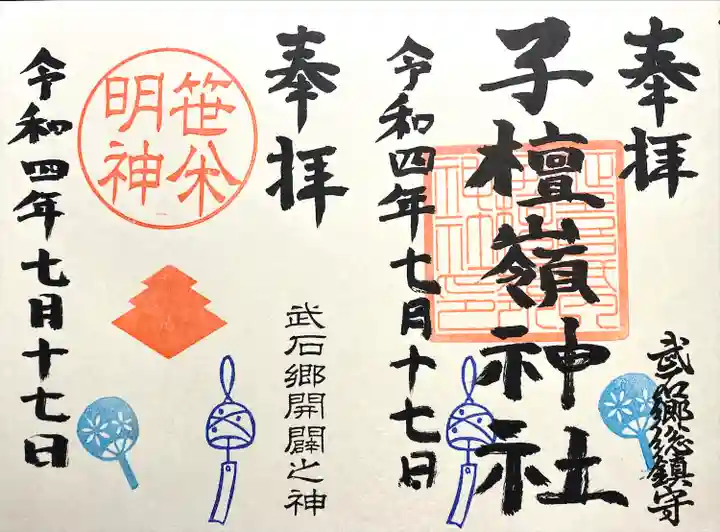 奉拝
武石郷総鎮守
子檀嶺神社
令和四年七月十七日
奉拝
武石郷開闢之神
笹焼
明神
令和四年七月十七日